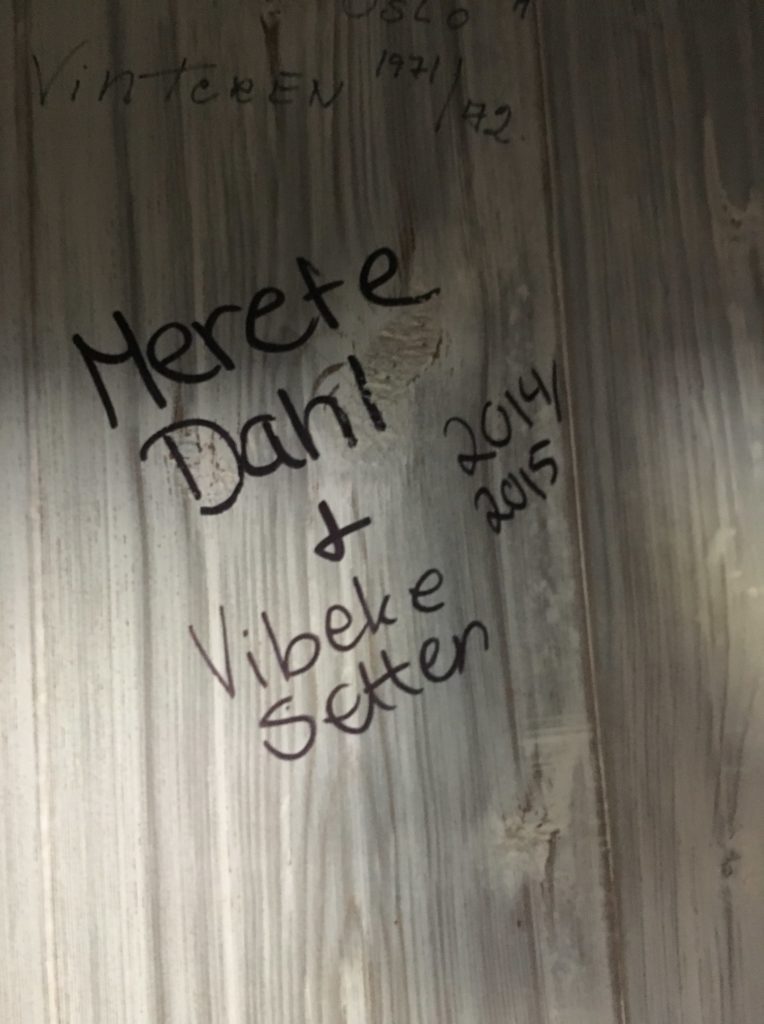 OSLO 1
VINTEREN 1971/72
Merete
Dahl
2014/
2015
+
Vibeke
Setten